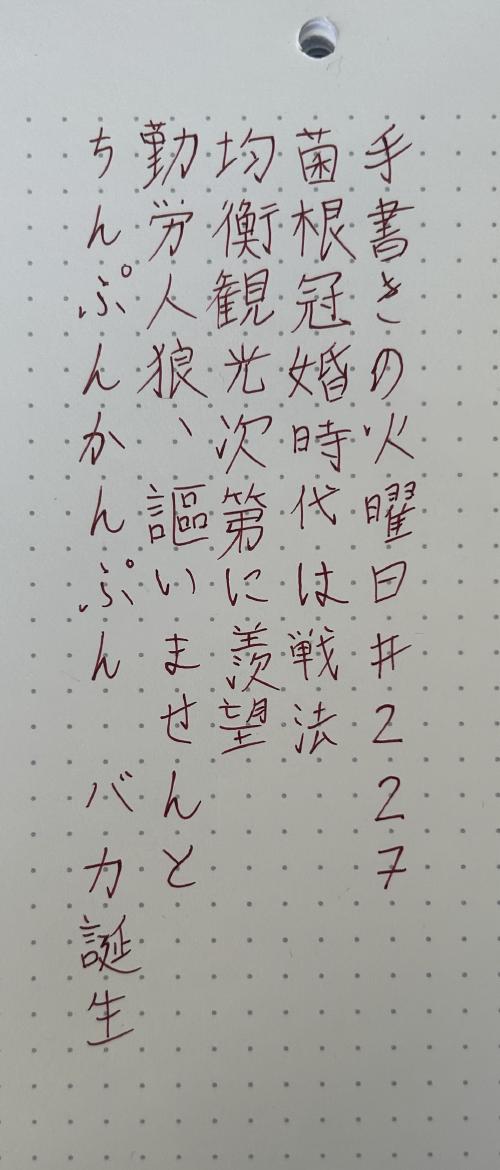 手書きの火曜日#227
菌根冠婚時代は戦法
均衡観光次第に羨望
勤労人狼、謳いませんと
ちんぷんかんぷん　バカ誕生